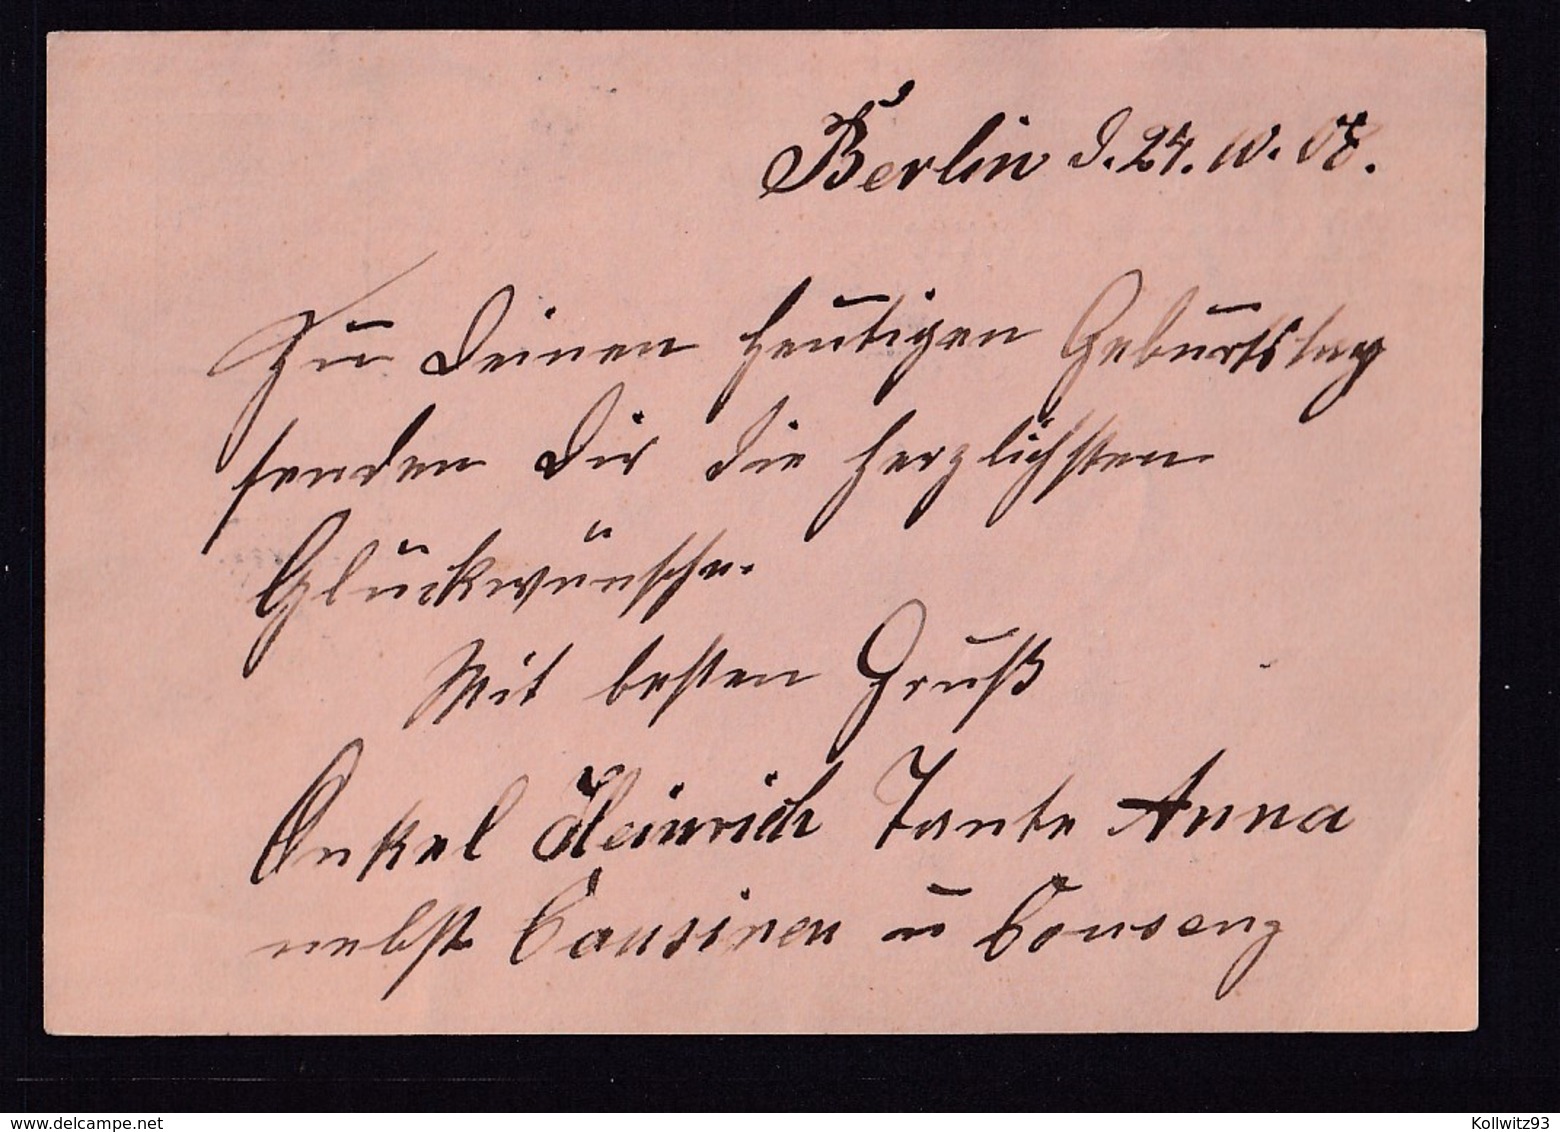 Berlin d. 24. 10. 08.
Zu Deinen heutigen Geburtstag
senden Dir die herzlichsten
Glückwünsche.
Mit besten Gruß
Onkel Heinrich Tante Anna
nebst Cousinen u
www.delcampe.net
Kollwitz93